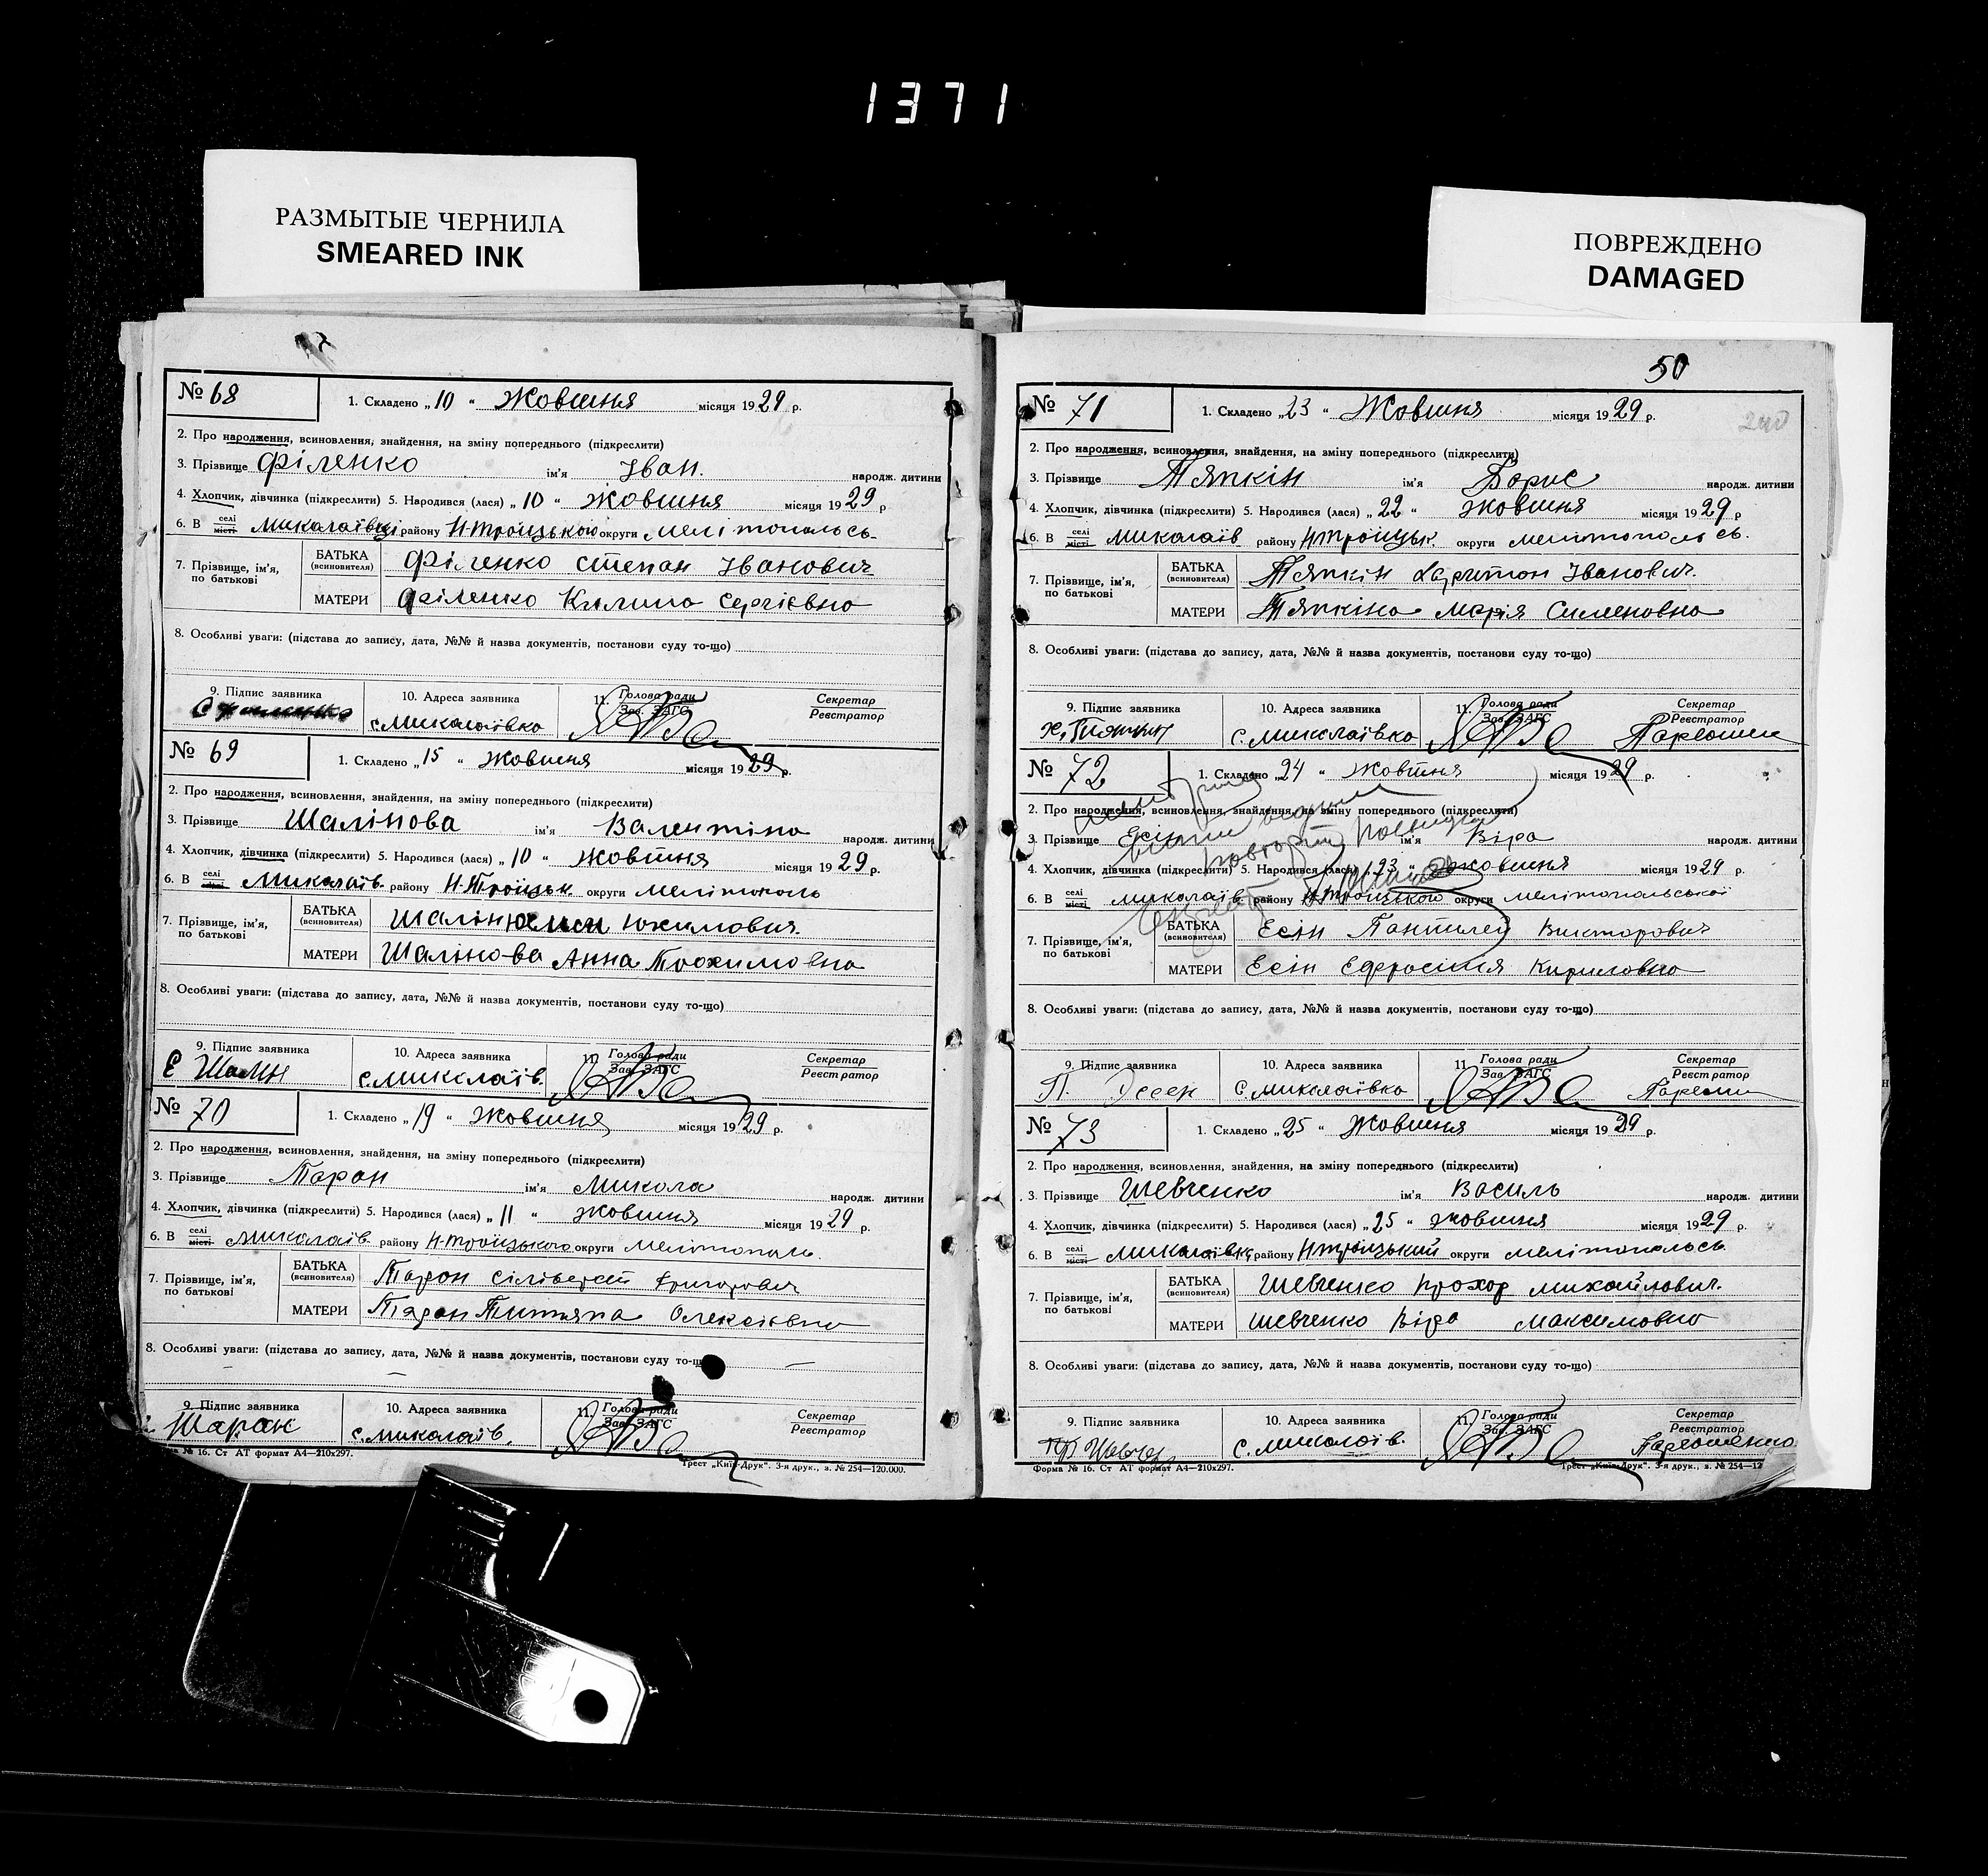 1371
РАЗМЫТЫЕ ЧЕРНИЛА
SMEARED INK
ПОВРЕЖДЕНО
DAMAGED
№ 68
1. Складено „ 10 “ Жовтня місяця 1929 р.
2. Про народження, всиновлення, знайдення, на зміну попереднього (підкреслити)
3. Прізвище Філенко ім'я Іван. народж. дитини
4. Хлопчик, дівчинка (підкреслити) 5. Народився (лася) „ 10 “ Жовтня місяця 1929 р
6. В селі місті Миколаївці району Н-Троїцького округи Мелітопольсь
7. Прізвище, ім'я, по батькові
БАТЬКА (всиновителя) Філенко Степан Іванович
МАТЕРИ Філенко Килина Сергієвна
8. Особливі уваги: (підстава до запису, дата, №№ й назва документів, постанови суду то-що)
9. Підпис заявника
10. Адреса заявника с. Миколаївка
11. Голова ради Зав. ЗАГС
Секретар Реєстратор
№ 69
1. Складено „ 15 “ Жовтня місяця 1929 р.
2. Про народження, всиновлення, знайдення, на зміну попереднього (підкреслити)
3. Прізвище Шалінова ім'я Валентіна народж. дитини
4. Хлопчик, дівчинка (підкреслити) 5. Народився (лася) „ 10 “ Жовтня місяця 1929 р.
6. В селі місті Миколаїв. району Н-Троїцьк. округи Мелітополь
7. Прізвище, ім'я, по батькові
БАТЬКА (всиновителя) Шалін
МАТЕРИ Шалінова Анна Трохимовна
8. Особливі уваги: (підстава до запису, дата, №№ й назва документів, постанови суду то-що)
9. Підпис заявника Е Шалін
10. Адреса заявника с. Миколаїв.
11. Голова ради Зав. ЗАГС
Секретар Реєстратор
№ 70
1. Складено „ 19 “ Жовтня місяця 1929 р.
2. Про народження, всиновлення, знайдення, на зміну попереднього (підкреслити)
3. Прізвище Таран ім'я Микола народж. дитини
4. Хлопчик, дівчинка (підкреслити) 5. Народився (лася) „ 11 “ Жовтня місяця 1929 р.
6. В селі місті Миколаїв. району Н-Троїцького округи Мелітополь.
7. Прізвище, ім'я, по батькові
БАТЬКА (всиновителя) Таран Сіліверст Григорович
МАТЕРИ Таран Титяна Олексієвна
8. Особливі уваги: (підстава до запису, дата, №№ й назва документів, постанови суду то-що)
9. Підпис заявника Таран
10. Адреса заявника с. Миколаїв.
11. Голова ради Зав. ЗАГС
Секретар Реєстратор
№ 16. Ст АТ формат А4—210х297.
Трест „Київ-Друк". 3-я друк., з. № 254—120.000.
50
240
№ 71
1. Складено „ 23 “ Жовтня місяця 1929 р.
2. Про народження, всиновлення, знайдення, на зміну попереднього (підкреслити)
3. Прізвище Тяпкін ім'я Борис народж. дитини
4. Хлопчик, дівчинка (підкреслити) 5. Народився (лася) „ 22 “ Жовтня місяця 1929 р
6. В селі місті Миколаїв району Н-Троїцьк. округи Мелітопольсь.
7. Прізвище, ім'я, по батькові
БАТЬКА (всиновителя) Тяпкін Харитон Іванович.
МАТЕРИ Тяпкіна Марія Сименовна
8. Особливі уваги: (підстава до запису, дата, №№ й назва документів, постанови суду то-що)
9. Підпис заявника Х. Тяпкин
10. Адреса заявника с. Миколаївка
11. Голова ради Зав. ЗАГС
Секретар Реєстратор
№ 72
1. Складено „ 24 “ Жовтня місяця 1929 р.
2. Про народження, всиновлення, знайдення, на зміну попереднього (підкреслити)
3. Прізвище Есін ім'я Віра народж. дитини
4. Хлопчик, дівчинка (підкреслити) 5. Народився (лася) „ 23 “ Жовтня місяця 1929 р.
6. В селі місті Миколаїв. району Н-Троїцького округи Мелітопольської
7. Прізвище, ім'я, по батькові
БАТЬКА (всиновителя) Есін Пантилей Викторович
МАТЕРИ Есін Ефросінія Кириловна
8. Особливі уваги: (підстава до запису, дата, №№ й назва документів, постанови суду то-що)
9. Підпис заявника П. Эсен
10. Адреса заявника с. Миколаївка
11. Голова ради Зав. ЗАГС
Секретар Реєстратор
№ 73
1. Складено „ 25 “ Жовтня місяця 1929 р.
2. Про народження, всиновлення, знайдення, на зміну попереднього (підкреслити)
3. Прізвище Шевченко ім'я Василь народж. дитини
4. Хлопчик, дівчинка (підкреслити) 5. Народився (лася) „ 25 “ Жовтня місяця 1929 р.
6. В селі місті Миколаївці району Н-Троїцький округи Мелітопольсь
7. Прізвище, ім'я, по батькові
БАТЬКА (всиновителя) Шевченко Прохор Михайлович.
МАТЕРИ Шевченко Віра Максимовна
8. Особливі уваги: (підстава до запису, дата, №№ й назва документів, постанови суду то-що)
9. Підпис заявника
10. Адреса заявника с. Миколаїв.
11. Голова ради Зав. ЗАГС
Секретар Реєстратор Пархоменко
Форма № 16. Ст АТ формат А4—210х297.
Трест „Київ-Друк". 3-я друк., з. № 254—12